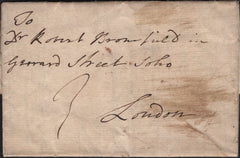 To
Dr Robert Bromfield in
Gerrard Street Soho
3
London